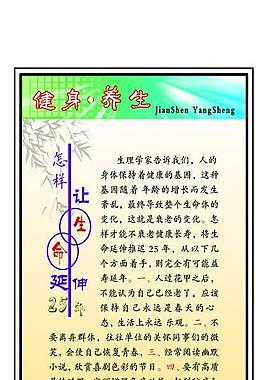 健身·养生
JianShen YangSheng
怎样
让
生命
延伸
25年
生理学家告诉我们，人的
身体保持着健康的基因，这种
基因随着 年龄的增长而发生
紊乱，最终导致整个生命体的
变化，这就是衰老的变化。怎
样才能不衰老健康长寿，将生
命延伸推迟 25 年，从以下几
个方面着手，则完全有可能益
寿延年。一、人过花甲之后，
不能认为自己已经老了，应该
保持自己永远是春天的心
态，生活上永远 乐观。二、不
要离弃群体，往往单位的关怀同事们的微
笑，会使自己恢复青春，三、经常阅读幽默
小说，欣赏喜剧色彩的节目。四、要有高质